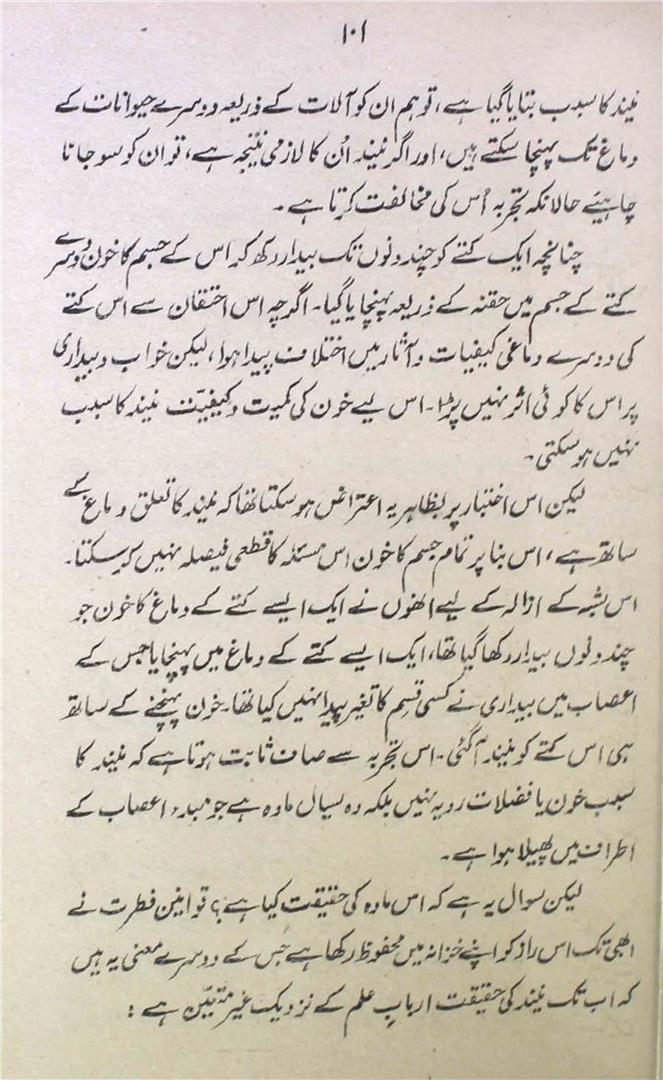 ۱۰۱
نیند کا سبب بتایا گیا ہے، تو ہم ان کو آلات کے ذریعہ دوسرے حیوانات کے
دماغ تک پہنچا سکتے ہیں، اور اگر نیند اُن کا لازمی نتیجہ ہے، تو ان کو سو جانا
چاہئیے حالانکہ تجربہ اُس کی مخالفت کرتا ہے۔
چنانچہ ایک کتے کو چند دنوں تک بیدار رکھ کر اس کے جسم کا خون دوسرے
کتے کے جسم میں حقنہ کے ذریعہ پہنچایا گیا۔ اگرچہ اس احتقان سے اس کتے
کی دوسرے دماغی کیفیات و آثار میں اختلاف پیدا ہوا، لیکن خواب و بیداری
پر اس کا کوئی اثر نہیں پڑا۔ اس لیے خون کی کمیت و کیفیت نیند کا سبب
نہیں ہو سکتی۔
لیکن اس اختبار پر بظاہر یہ اعتراض ہو سکتا تھا کہ نیند کا تعلق دماغ کے
ساتھ ہے، اس بنا پر تمام جسم کا خون اس مسئلہ کا قطعی فیصلہ نہیں کر سکتا۔
اس شبہ کے ازالہ کے لیے انھوں نے ایک ایسے کتے کے دماغ کا خون جو
چند دنوں بیدار رکھا گیا تھا، ایک ایسے کتے کے دماغ میں پہنچایا جس کے
اعصاب میں بیداری نے کسی قسم کا تغیر پیدا نہیں کیا تھا۔ خون پہنچنے کے ساتھ
ہی اس کتے کو نیند آ گئی۔ اس تجربہ سے صاف ثابت ہوتا ہے کہ نیند کا
سبب خون یا فضلات ردیہ نہیں بلکہ وہ سیال مادہ ہے جو مبدء اعصاب کے
اطراف میں پھیلا ہوا ہے۔
لیکن سوال یہ ہے کہ اس مادہ کی حقیقت کیا ہے؟ قوانین فطرت نے
ابھی تک اس راز کو اپنے خزانہ میں محفوظ رکھا ہے جس کے دوسرے معنی یہ ہیں
کہ اب تک نیند کی حقیقت اربابِ علم کے نزدیک غیر متعیّن ہے :